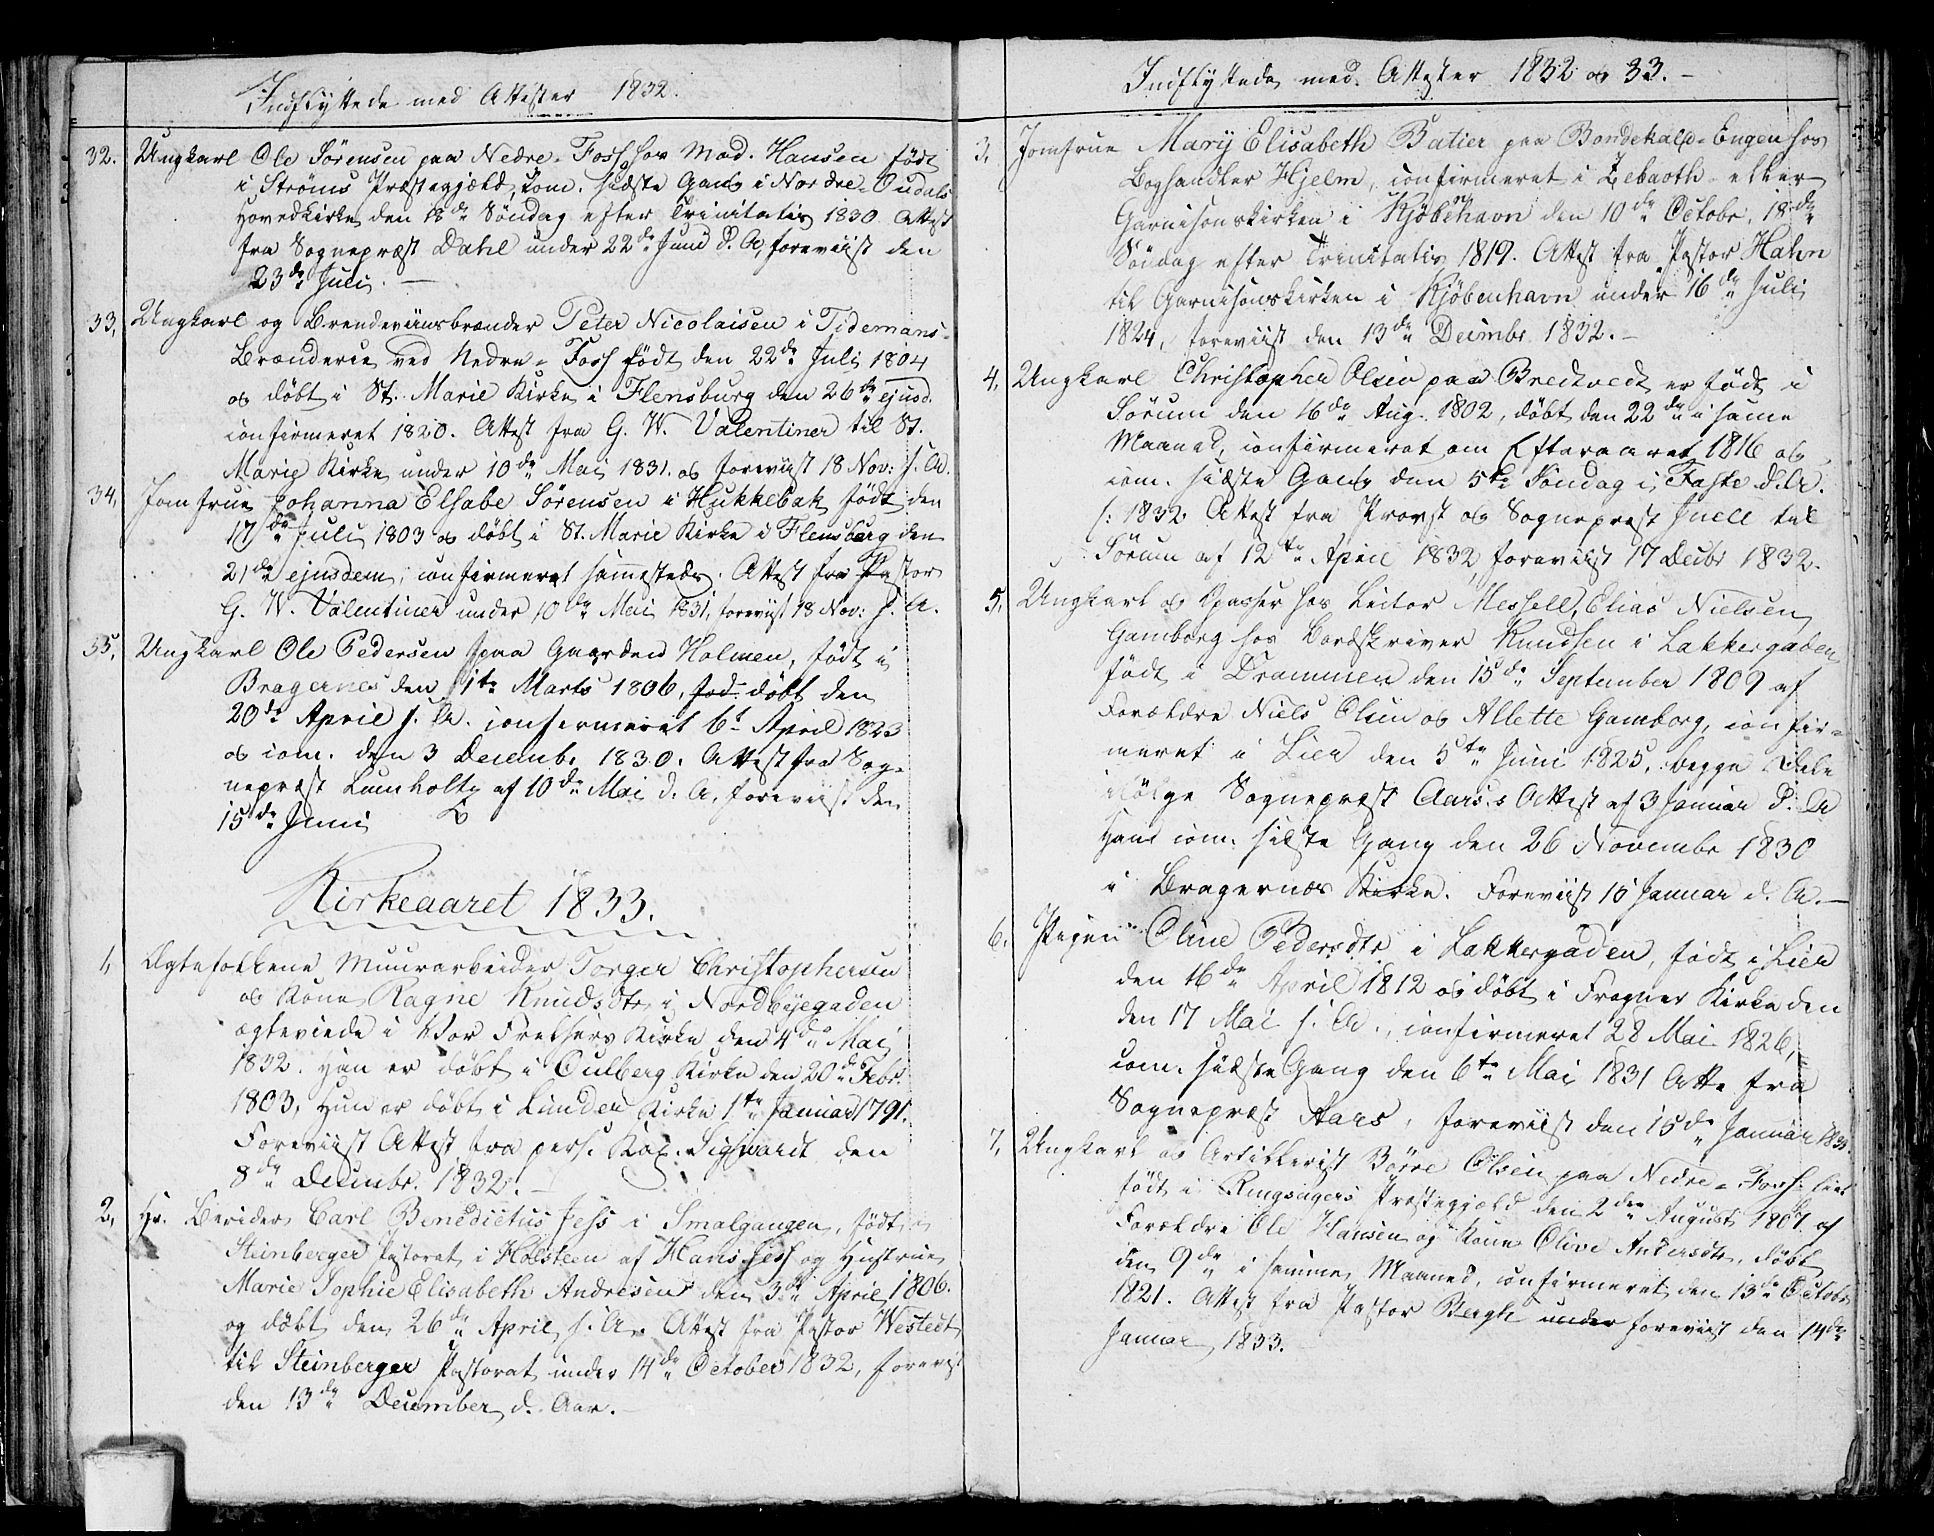 Indflyttede med Attester 1832.
32. Ungkarl Ole Sörensen paa Nedre-Foss hos Mad. Hansen födt
i Ströms Præstegjæld, com. sidste Gang i Nordre-Oudals
Hovedkirke den 18de Söndag efter Trinitatis 1830. Attest
fra Sognepræst Dahl under 22de Juni d. A, foreviist den
23de Juli. —
33, Ungkarl og Brendeviinsbrænder Peter Nicolaisen i Tidemans-
Brænderie ved Nedre-Foss födt den 22de Juli 1804
og döbt i St. Marie Kirke i Flensburg den 26de ejusd.
confirmeret 1820. Attest fra G. W. Valentiner til St.
Marie Kirke under 10de Mai 1831. og foreviist 18 Nov: s. A.
34, Jomfrue Johanna Elsabe Sörensen i Hukkebak födt den
17de Juli 1803 og döbt i St. Marie Kirke i Flensburg den
21de ejusdem, confirmeret sammesteds. Attest fra Pastor
G. W. Valentiner under 10de Mai 1831, foreviist 18 Nov: s. A.
35, Ungkarl Ole Pedersen paa Gaarden Holmen, födt i
Bragernes den 1te Marts 1806, döbt den
20de April s. A. confirmeret 6t April 1823
og com. den 3 Decembr. 1830. Attest fra Sog-
nepræst Lumholtz af 10de Mai d. A. foreviist den
15de Juni
Kirkeaaret 1833.
1, Ægtefolkene Muurarbeider Torger Christophersen
og Kone Ragne Knudsdtr i Nordbyegaden
ægteviede i Vor Frelsers Kirke den 4de Mai
1832. Han er döbt i Culberg Kirke den 20de Febr.
1803, Hun er döbt i Lunder Kirke 1te Januar 1791.
Foreviist Attest fra pers. Kap. Sigwardt den
8de Decembr. 1832. —
2, Hr. Berider Carl Benedictus Jess i Smalgangen, födt i
Steinberger Pastorat i Holsteen af Hans Jess og Hustrue
Marie Sophie Elisabeth Andresen den 3de April 1806.
og döbt den 26de April s. A. Attest fra Pastor Westedt
til Steinberger Pastorat under 14de October 1832, foreviist
den 13de December d. Aar. —
Indflyttede med Attester 1832 og 33. —
3, Jomfrue Mary Elisabeth Batier paa Bondekald-Engen hos
Boghandler Hjelm, confirmeret i Zebaoth- eller
Garnisonskirken i Kjöbenhavn den 10de Octobr, 18de
Söndag efter Trinitatis 1819. Attest fra Pastor Hahn
til Garnisonskirken i Kjöbenhavn under 16de Juli
1824, foreviist den 13de Decembr 1832. —
4, Ungkarl Christopher Olsen paa Bredtvedt er födt i
Sörum den 16de Aug. 1802, döbt den 22de i samme
Maaned, confirmeret om Efteraaret 1816 og
com. sidste Gang den 5te Söndag i Faste d. A.
/: 1832. Attest fra Provst og Sognepræst Juell til
Sörum af 12te April 1832, foreviist 17 Decbr 1832.
5, Ungkarl og Opasser hos Lector Messell, Elias Nielsen
Gamborg hos Bordskriver Knudsen i Lakkergaden
födt i Drammen den 15de September 1809 af
Forældre Niels Olsen og Allette Gamborg, confir-
meret i Lier den 5te Juni 1825, begge Dele
ifölge Sognepræst Aars.s Attest af 3 Januar d. A
Hand com. sidste Gang den 26 Novembr 1830
i Bragernæs Kirke. Foreviist 15 Januar d. A. —
6. Pigen Oline Pedersdtr i Lakkergaden, födt i Lier
den 16de April 1812 og döbt i Frogner Kirke den
den 17 Mai s. A., confirmeret 28 Mai 1826,
com. sidste Gang den 6te Mai 1831 Atte fra
Sognepræst Aars, foreviist den 15de Januar 1833.
7, Ungkarl og Artillerist Börre Olsen paa Nedre-Foss
födt i Ringsagers Præstegjæld den 2den August 1807. af
Forældre Ole Hansen og Kone Olive Andersdtr, döbt
den 9de i samme Maaned, confirmeret den 13de Octobr
1821. Attest fra Pastor Bergh under foreviist den 14de
Januar 1833.